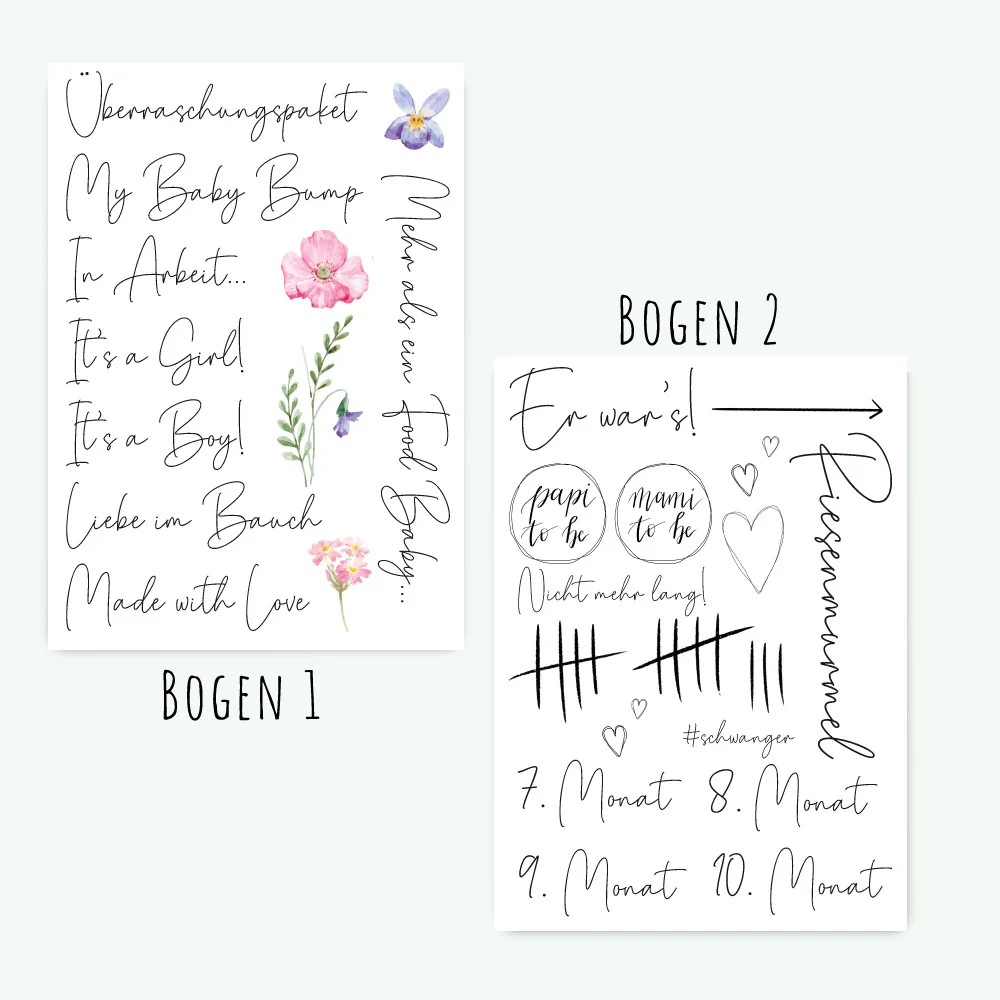 Überraschungspaket
My Baby Bump
In Arbeit...
It's a Girl!
It's a Boy!
Liebe im Bauch
Made with Love
Mehr als ein Food Baby...
Bogen 1
Bogen 2
Er war's!
papi
to be
mami
to be
Nicht mehr lang!
#schwanger
Riesenmurmel
7. Monat
8. Monat
9. Monat
10. Monat